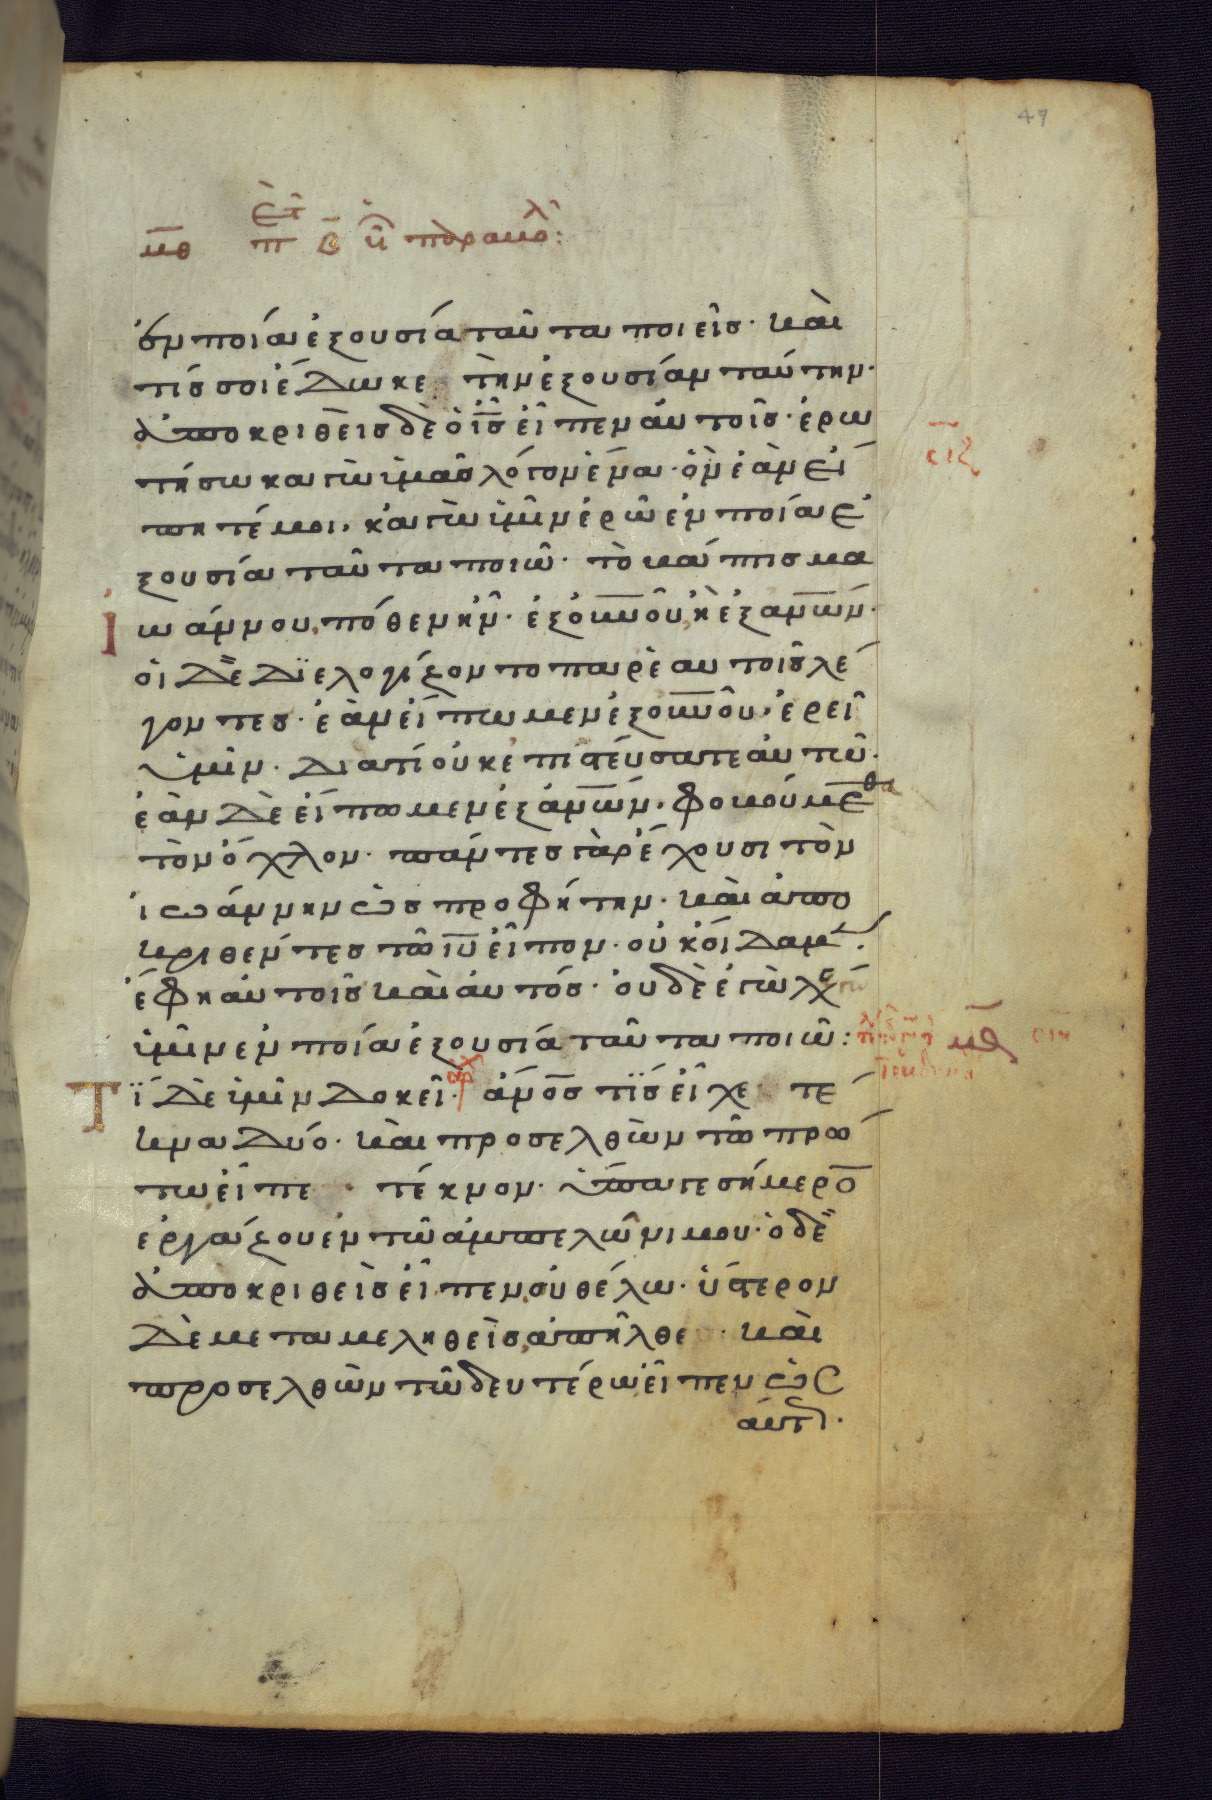 49
μθ περὶ τῶν β υἱῶν παραβολή:
ἐν ποία ἐξουσία ταῦτα ποιεῖς· καὶ
τίς σοι ἔδωκε τὴν ἐξουσίαν ταύτην·
ἀποκριθεὶς δὲ ὁ ι̅ς̅ εἶπεν αὐτοῖς· ἐρω
τήσω καγὼ ὑμᾶς λόγον ἕνα· ὃν ἐὰν εἴ
πητέ μοι, καγὼ ὑμῖν ἐρῶ ἐν ποία ἐ
ξουσία ταῦτα ποιῶ· τὸ βάπτισμα
ἰωάννου, πόθεν ἦν· ἐξ ο̅υ̅ν̅οῦ, ἢ ἐξ α̅ν̅ων·
οἱ δὲ διελογίζοντο παρ' ἑαυτοῖς λέ
γοντες· ἐὰν εἴπωμεν ἐξ ο̅υ̅ν̅οῦ, ἐρεῖ
ἡμῖν· διατί οὐκ ἐπιστεύσατε αὐτῶ·
ἐὰν δὲ εἴπωμεν ἐξ α̅ν̅ων, φοβούμεθα
τὸν ὄχλον· πάντες γὰρ ἔχουσι τὸν
ἰωάννην ὡς προφήτην· καὶ ἀπο
κριθέντες τῶ ι̅υ̅ εἶπον· οὐκ οἴδαμεν·
ἔφη αὐτοῖς καὶ αὐτός· οὐδὲ ἐγὼ λέγω
ὑμῖν ἐν ποία ἐξουσία ταῦτα ποιῶ:
Τί δὲ ὑμῖν δοκεῖ· ἀρχ α̅ν̅ος τίς εἶχε τέ
κνα δύο· καὶ προσελθὼν τῶ πρώ
τω εἶπε τέκνον· ὕπαγε σήμερον
ἐργάζου ἐν τῶ ἀμπελῶνι μου· ὁ δὲ
ἀποκριθεὶς εἶπεν, οὐ θέλω· ὕστερον
δὲ μεταμεληθεὶς, ἀπῆλθε· καὶ
προσελθὼν τῶ δευτέρω εἶπεν ὡσ
αύτως·
σιζ
μθ
σιη